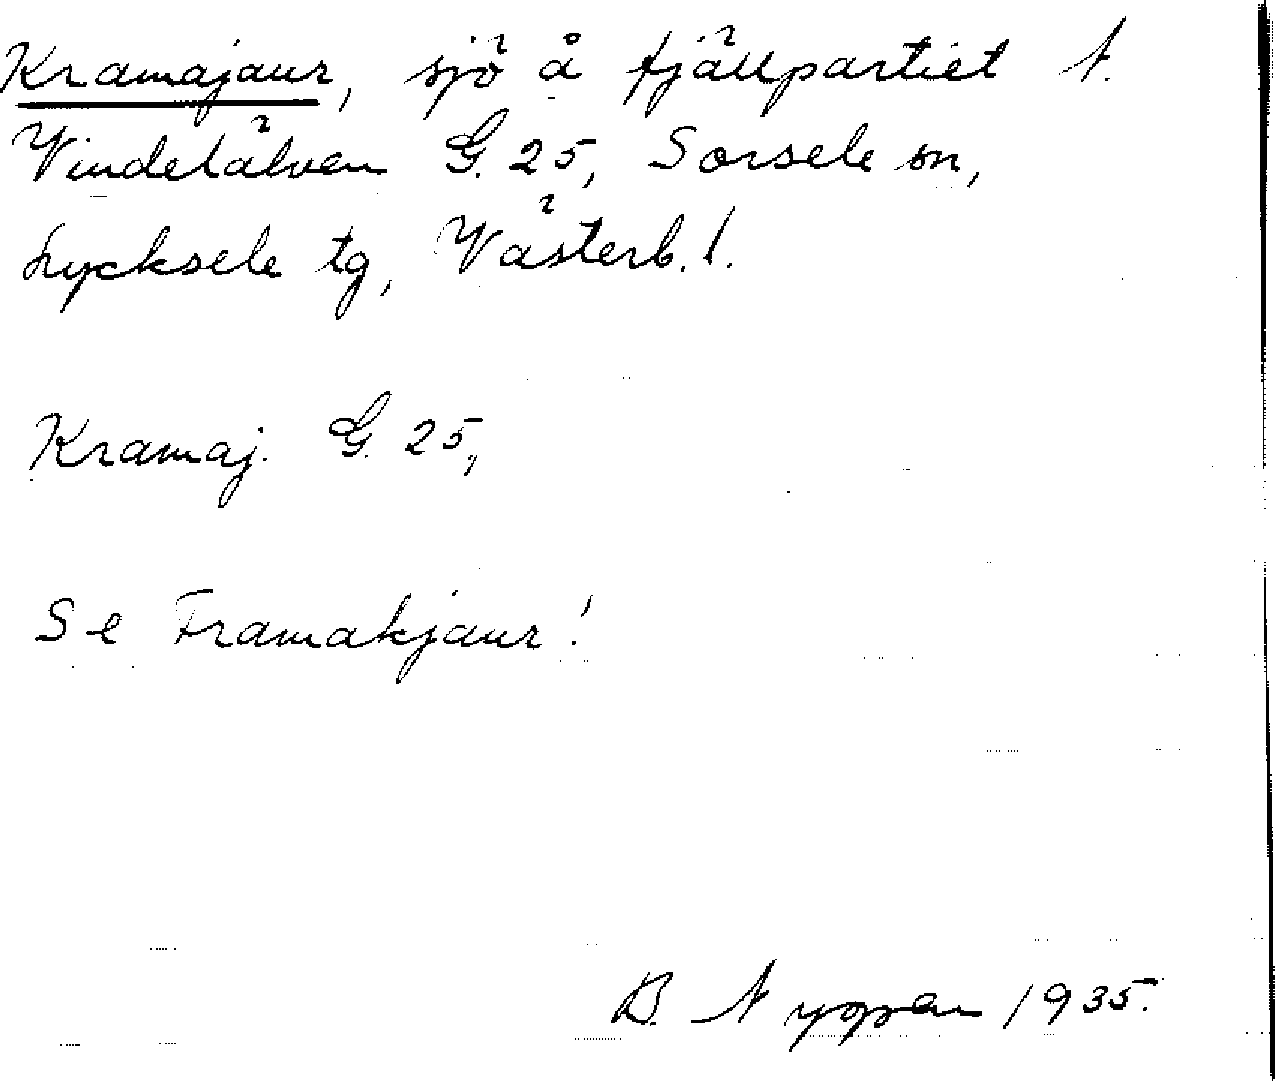 Kramajaur, sjö å fjällpartiet N.
Vindelälven G. 25, Sorsele sn,
Lycksele tg, Västerb. l.
Kramaj. G. 25,
Se Framakjaur!
B. Nygren 1935.